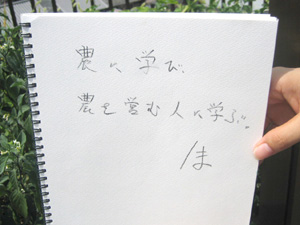 農に学び、
農を営む人に学ぶ。